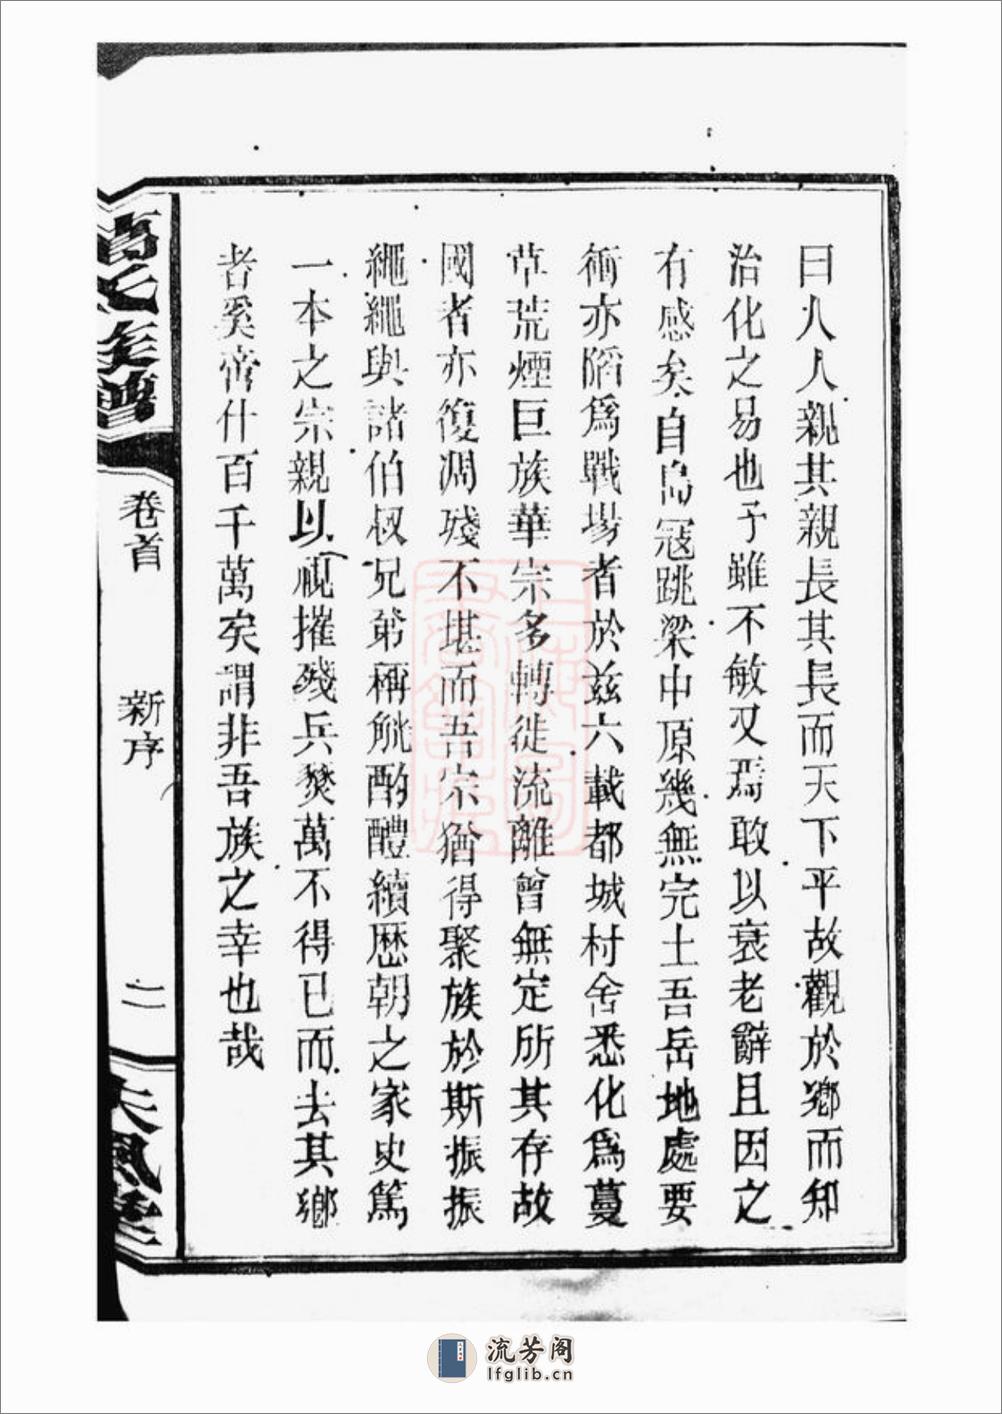 曰人人親其親長其長而天下平故觀於鄉而知
治化之易也予雖不敏又焉敢以衰老辭且因之
有感矣自島寇跳梁中原幾無完土吾岳地處要
衝亦陷爲戰場者於兹六載都城村舍悉化爲蔓
草荒煙巨族華宗多轉徙流離曾無定所其存故
國者亦復凋殘不堪而吾宗猶得聚族於斯振振
繩繩與諸伯叔兄弟稱觥酌醴續歷朝之家史篤
一本之宗親以視摧殘兵燹萬不得已而去其鄉
者奚啻什百千萬矣謂非吾族之幸也哉
氏族譜
卷首
新序
二
風堂
流芳阁
lfglib.cn